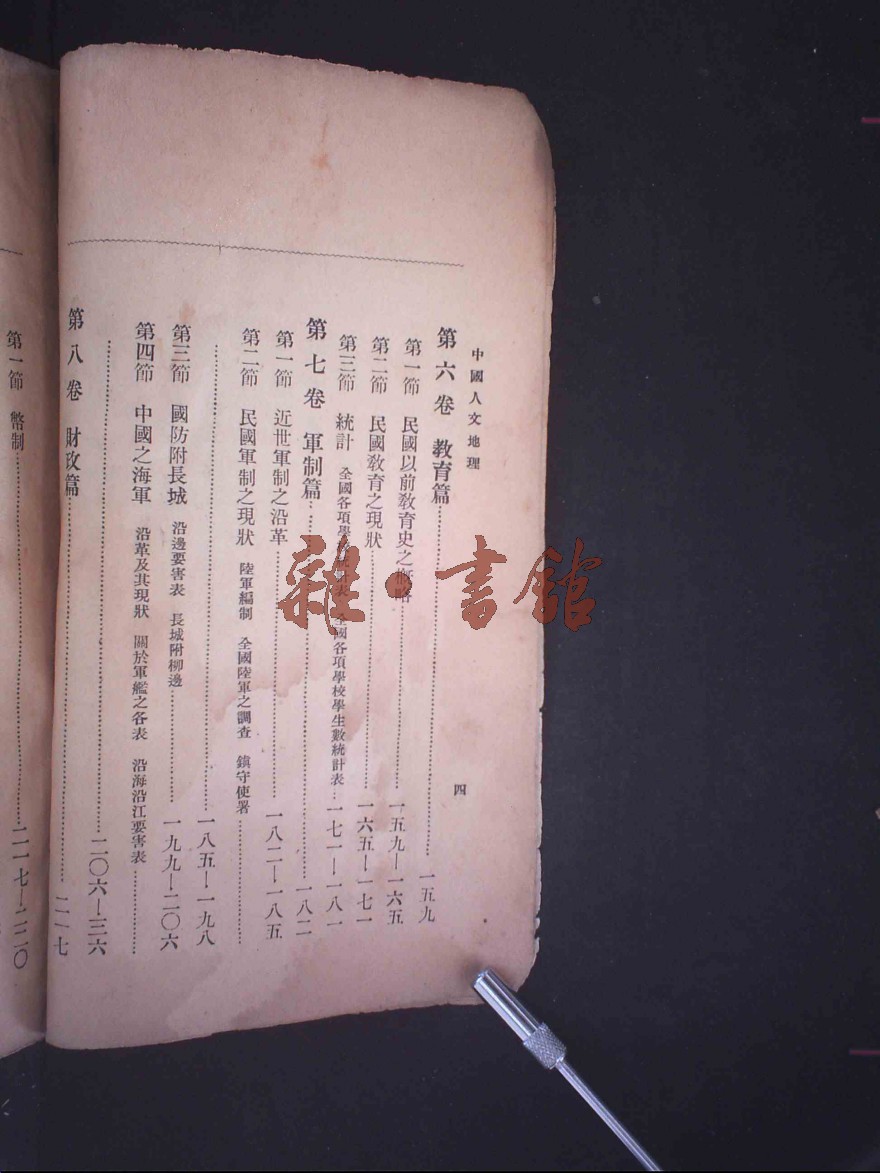 中國人文地理
四
第六卷 教育篇……一五九
第一節 民國以前教育史之概略……一五九—一六五
第二節 民國教育之現狀……一六五—一七一
第三節 統計 全國各項學校統計表 全國各項學校學生數統計表…一七一—一八一
第七卷 軍制篇……一八二
第一節 近世軍制之沿革……一八二—一八五
第二節 民國軍制之現狀 陸軍編制 全國陸軍之調查 鎮守使署……
……一八五—一九八
第三節 國防附長城 沿邊要害表 長城附柳邊……一九九—二〇六
第四節 中國之海軍 沿革及其現狀 關於軍艦之各表 沿海沿江要害表……
……二〇六—三六
第八卷 財政篇……二一七
第一節 幣制……二一七—二二〇
雜·書館